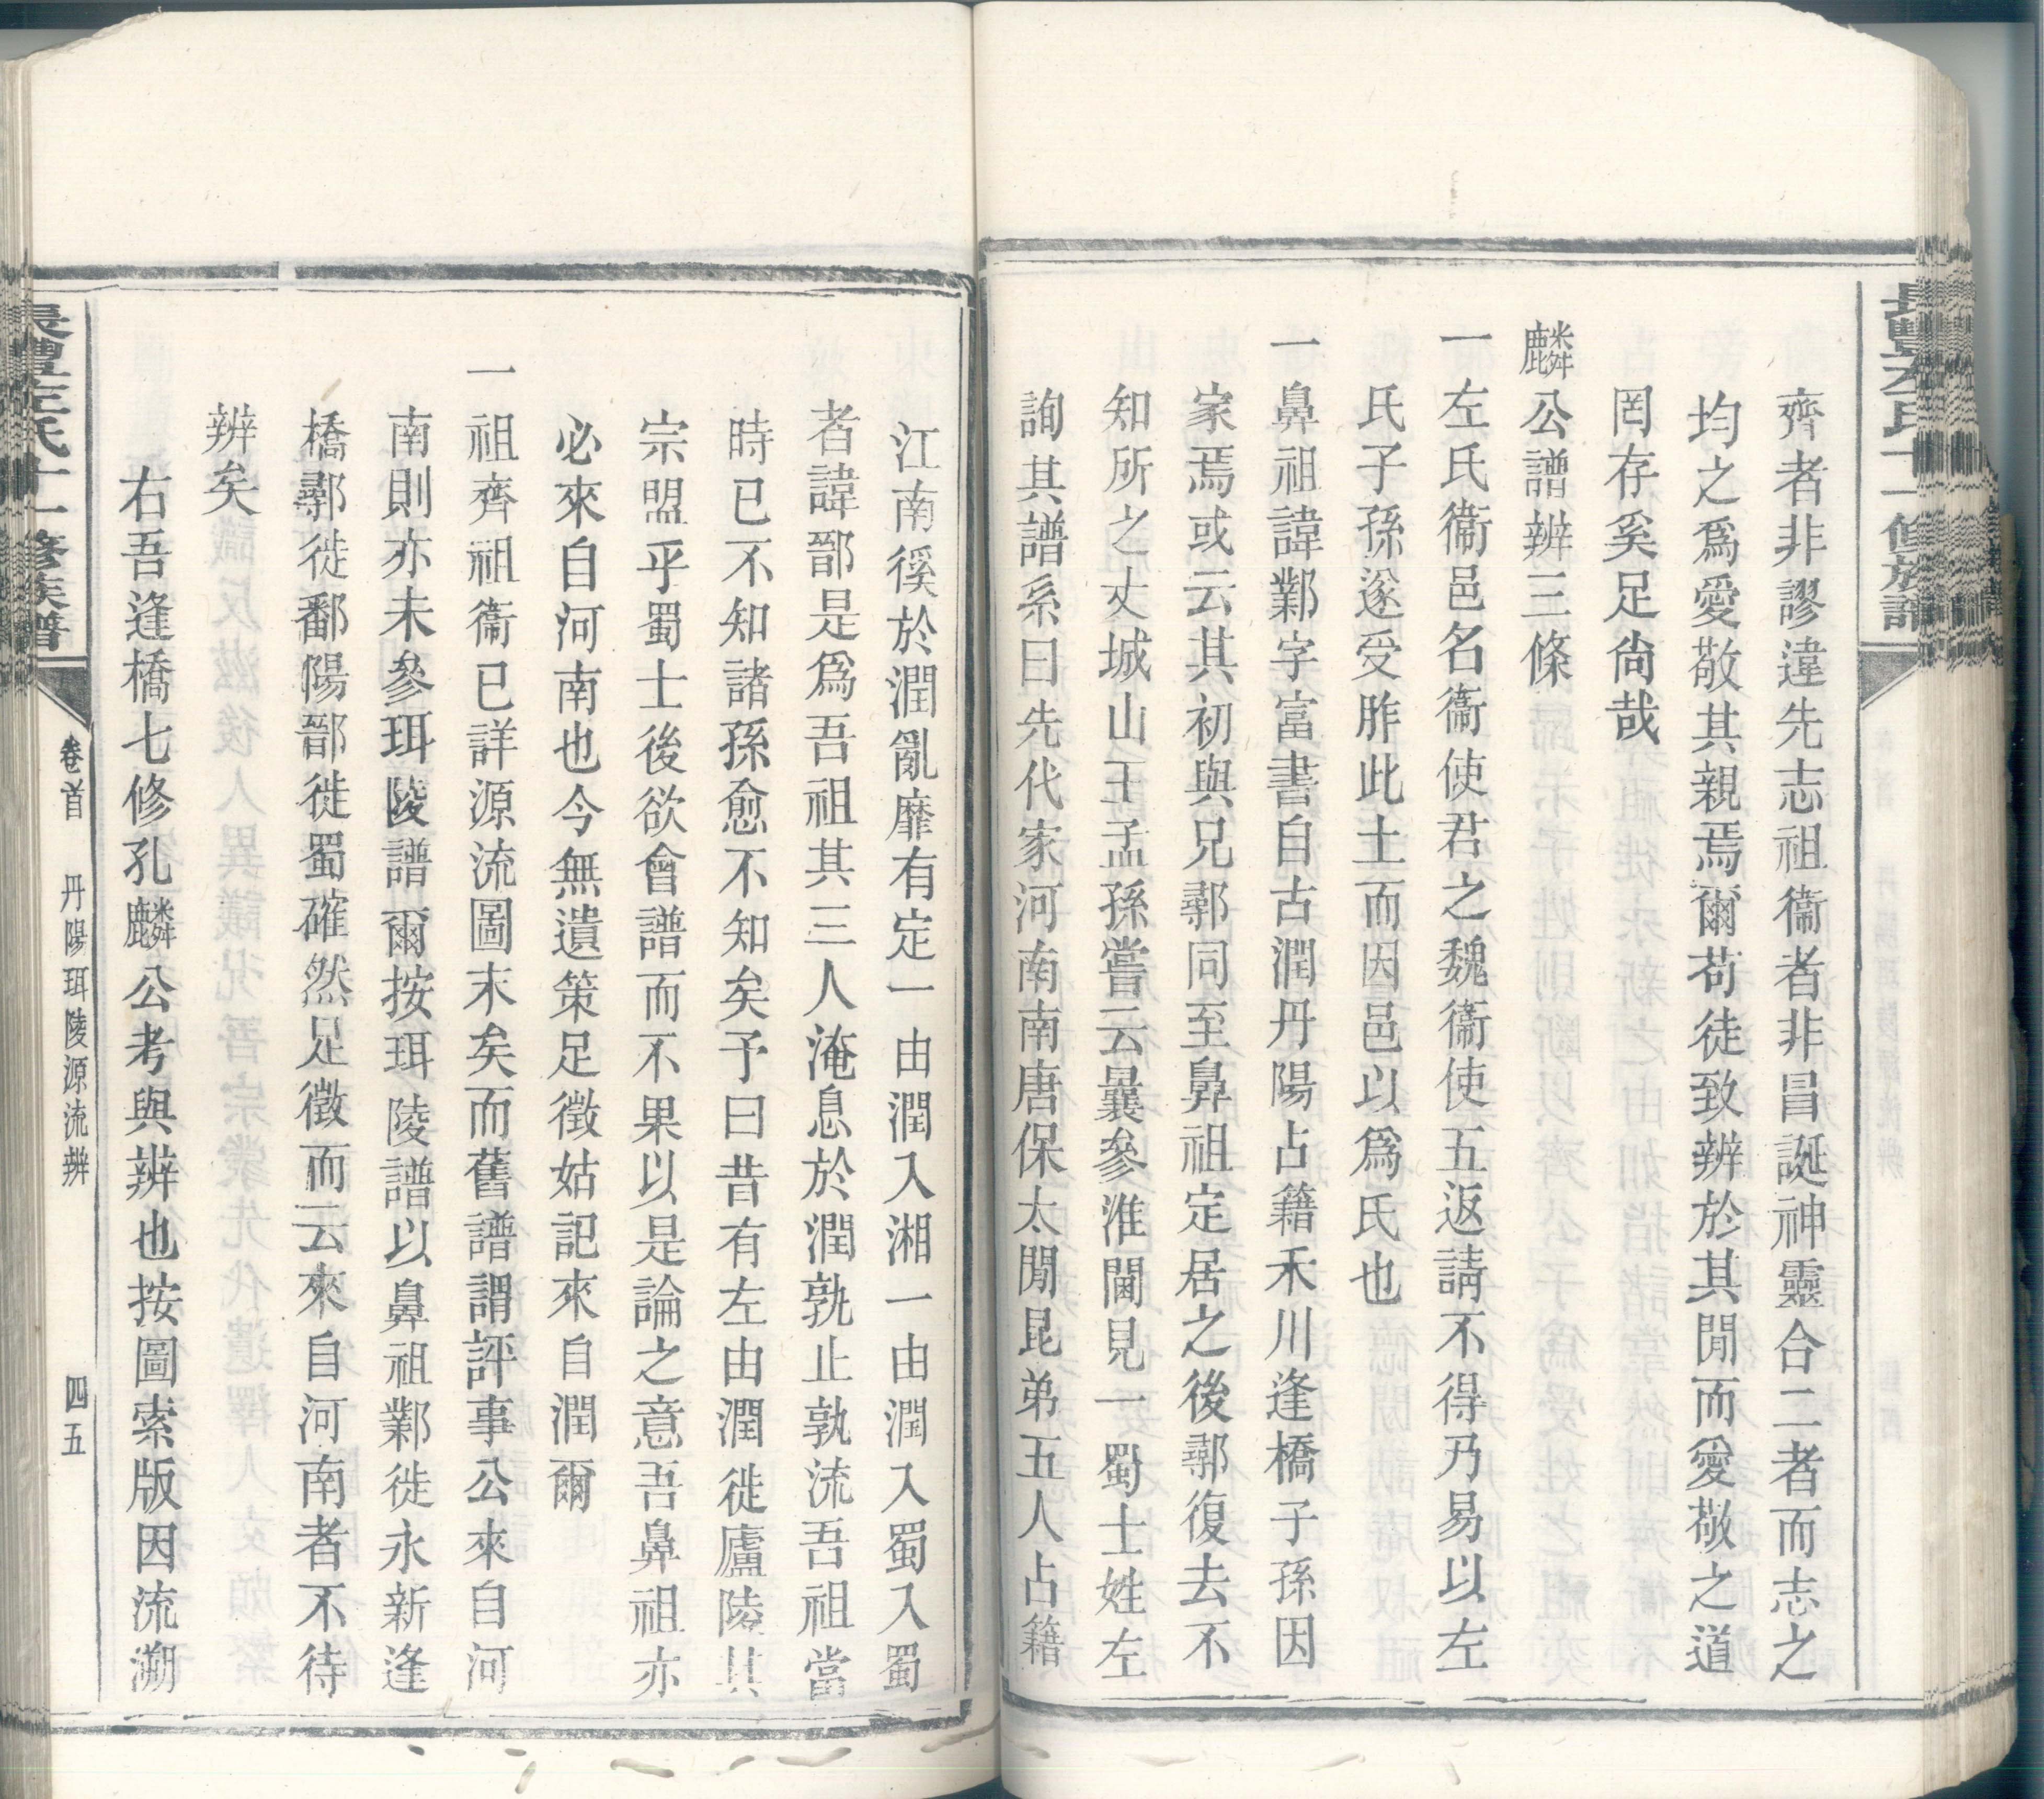 長豐左氏十一修族譜
齊者非謬違先志祖衞者非冒誕神靈合二者而志之
均之爲愛敬其親焉爾苟徒致辨於其閒而愛敬之道
罔存奚足尙哉
麟公譜辨三條
一左氏衞邑名衞使君之魏衞使五返請不得乃易以左
氏子孫遂受胙此土而因邑以爲氏也
一鼻祖諱鄴字富書自古潤丹陽占籍禾川逢橋子孫因
家焉或云其初與兄鄩同至鼻祖定居之後鄩復去不
知所之丈城山王孟孫嘗云曩參淮閫見一蜀士姓左
詢其譜系曰先代家河南南唐保太閒昆弟五人占籍
江南徯於潤亂靡有定一由潤入湘一由潤入蜀入蜀
者諱郚是爲吾祖其三人淹息於潤孰止孰流吾祖當
時已不知諸孫愈不知矣予曰昔有左由潤徙廬陵其
宗盟乎蜀士後欲會譜而不果以是論之意吾鼻祖亦
必來自河南也今無遺策足徵姑記來自潤爾
一祖齊祖衞已詳源流圖末矣而舊譜謂評事公來自河
南則亦未參珥陵譜爾按珥陵譜以鼻祖鄴徙永新逢
橋鄩徙鄱陽郚徙蜀確然足徵而云來自河南者不待
辨矣
右吾逢橋七修孔麟公考與辨也按圖索版因流溯
長豐左氏十一修族譜
卷首 丹陽珥陵源流辨 四五